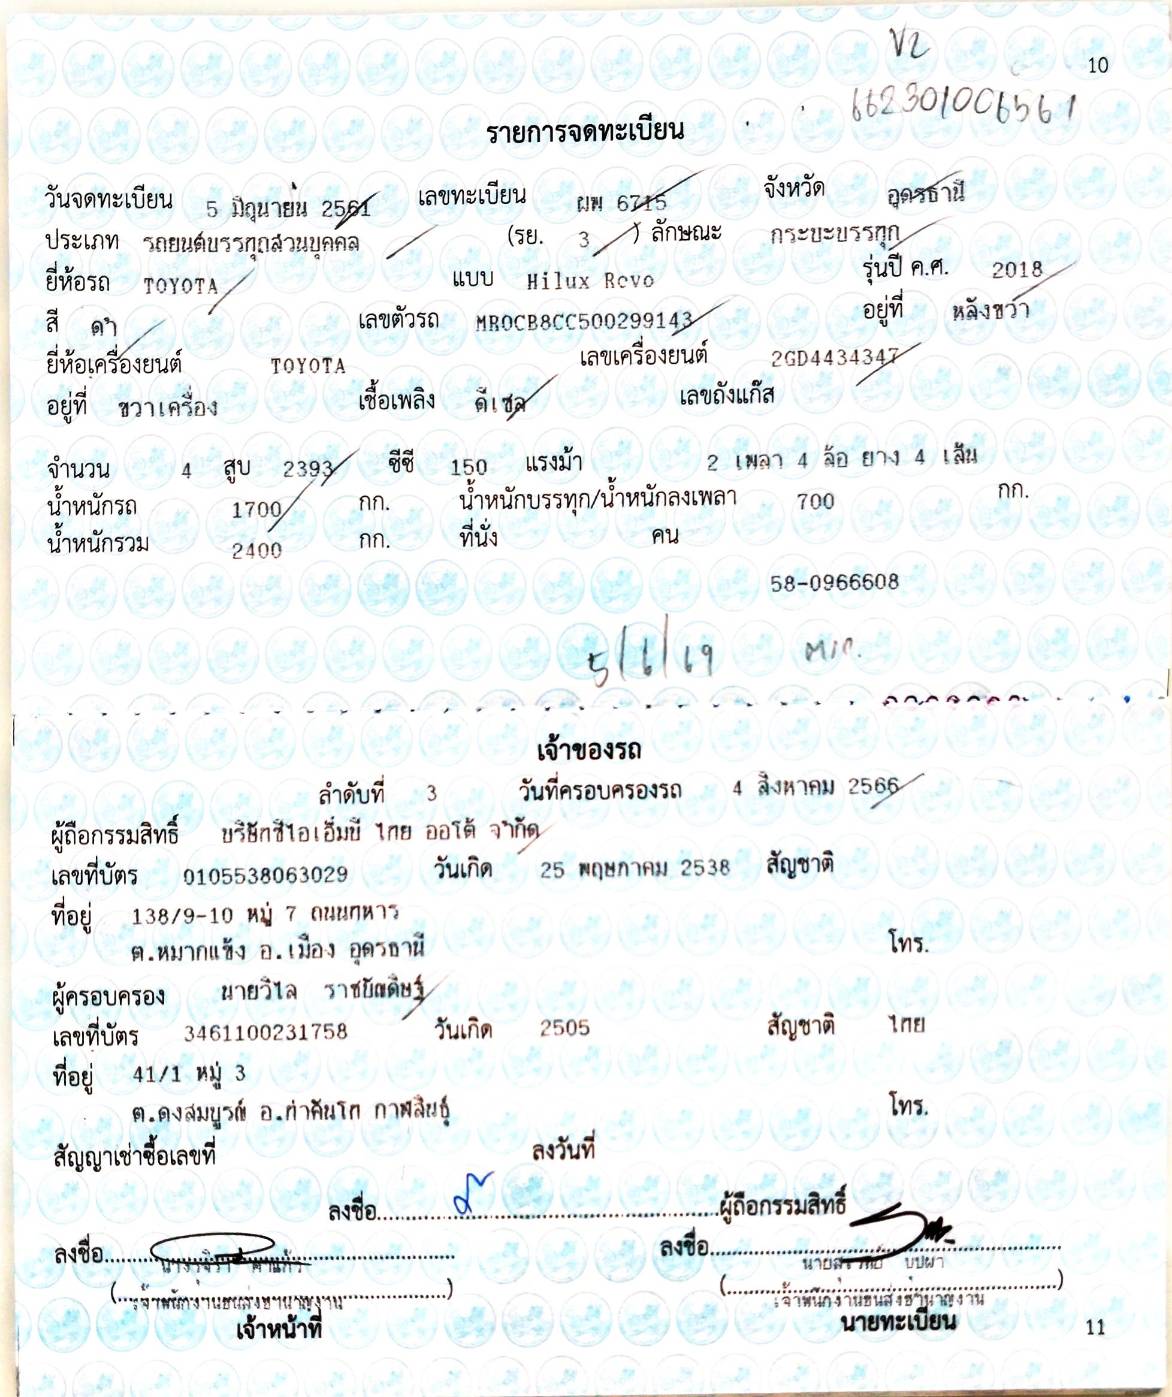 V2
10
662301006561
รายการจดทะเบียน
วันจดทะเบียน 5 มิถุนายน 2561 เลขทะเบียน ผพ 6715 จังหวัด อุดรธานี
ประเภท รถยนต์บรรทุกส่วนบุคคล (รย. 3 ) ลักษณะ กระบะบรรทุก
ยี่ห้อรถ TOYOTA แบบ Hilux Revo รุ่นปี ค.ศ. 2018
สี ดำ เลขตัวรถ MR0CB8CC500299143 อยู่ที่ หลังขวา
ยี่ห้อเครื่องยนต์ TOYOTA เลขเครื่องยนต์ 2GD4434347
อยู่ที่ ขวาเครื่อง เชื้อเพลิง ดีเซล เลขถังแก๊ส
จำนวน 4 สูบ 2393 ซีซี 150 แรงม้า 2 เพลา 4 ล้อ ยาง 4 เส้น
น้ำหนักรถ 1700 กก. น้ำหนักบรรทุก/น้ำหนักลงเพลา 700 กก.
น้ำหนักรวม 2400 กก. ที่นั่ง คน
58-0966608
5/6/69
เจ้าของรถ
ลำดับที่ 3 วันที่ครอบครองรถ 4 สิงหาคม 2566
ผู้ถือกรรมสิทธิ์ บริษัทซีไอเอ็มบี ไทย ออโต้ จำกัด
เลขที่บัตร 0105538063029 วันเกิด 25 พฤษภาคม 2538 สัญชาติ
ที่อยู่ 138/9-10 หมู่ 7 ถนนทหาร
ต.หมากแข้ง อ.เมือง อุดรธานี โทร.
ผู้ครอบครอง นายวิไล ราชบัณดิษฐ์
เลขที่บัตร 3461100231758 วันเกิด 2505 สัญชาติ ไทย
ที่อยู่ 41/1 หมู่ 3
ต.ดงสมบูรณ์ อ.ท่าคันโท กาฬสินธุ์ โทร.
สัญญาเช่าซื้อเลขที่ ลงวันที่
ลงชื่อ.......................................................ผู้ถือกรรมสิทธิ์
ลงชื่อ....................................................... ลงชื่อ.......................................................
(เจ้าพนักงานขนส่งชำนาญงาน) (เจ้าพนักงานขนส่งชำนาญงาน)
เจ้าหน้าที่ นายทะเบียน
11